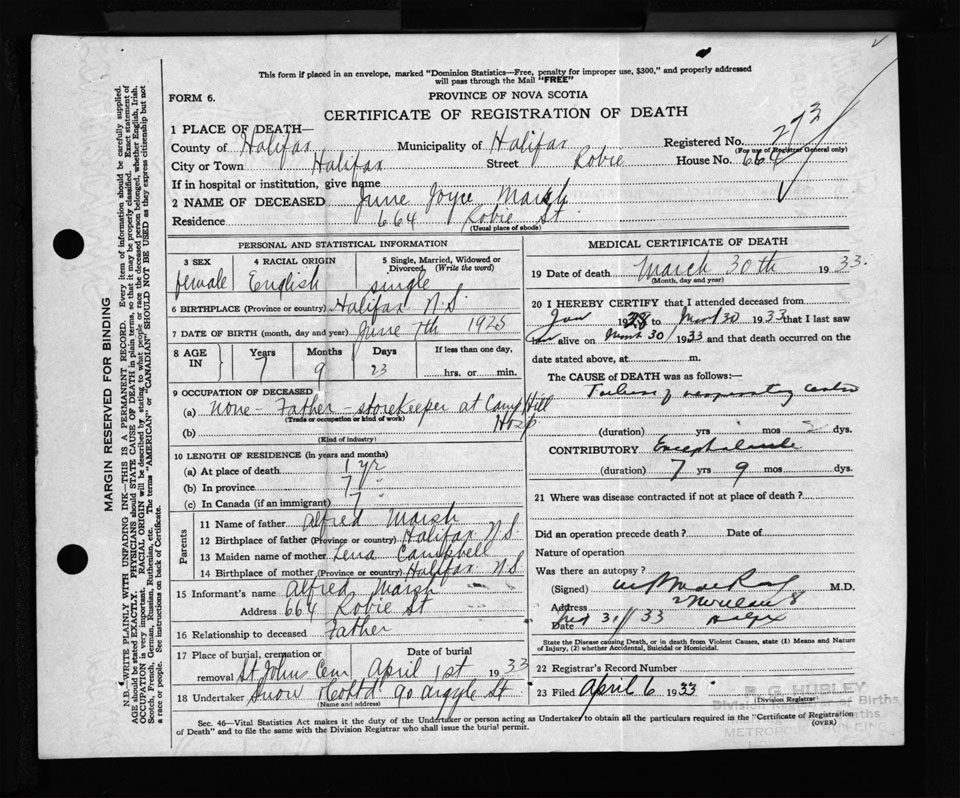 This form if placed in an envelope, marked "Dominion Statistics—Free, penalty for improper use, $300," and properly addressed
will pass through the Mail "FREE"
FORM 6.
PROVINCE OF NOVA SCOTIA
CERTIFICATE OF REGISTRATION OF DEATH
1 PLACE OF DEATH—
Registered No. 273
(For use of Registrar General only)
County of Halifax Municipality of Halifax
City or Town Halifax Street Robie House No. 664
If in hospital or institution, give name
2 NAME OF DECEASED June Joyce Marsh
Residence 664 Robie St
(Usual place of abode)
PERSONAL AND STATISTICAL INFORMATION
3 SEX 4 RACIAL ORIGIN 5 Single, Married, Widowed or Divorced (Write the word)
female English single
6 BIRTHPLACE (Province or country) Halifax N.S.
7 DATE OF BIRTH (month, day and year) June 7th 1925
8 AGE IN Years Months Days If less than one day,
7 9 23 hrs. or min.
9 OCCUPATION OF DECEASED
(a) None - Father - storekeeper at Camp Hill
(Trade or occupation or kind of work)
Hosp
(b)
(Kind of industry)
10 LENGTH OF RESIDENCE (in years and months)
(a) At place of death 1 yr
(b) In province 7 "
(c) In Canada (if an immigrant) 7 "
Parents
11 Name of father Alfred Marsh
12 Birthplace of father (Province or country) Halifax N.S.
13 Maiden name of mother Lena Campbell
14 Birthplace of mother (Province or country) Halifax N.S.
15 Informant's name Alfred Marsh
Address 664 Robie St
16 Relationship to deceased Father
17 Place of burial, cremation or removal Date of burial
St Johns Cem April 1st 1933
18 Undertaker Snow & Co Ltd 90 Argyle St
(Name and address)
MEDICAL CERTIFICATE OF DEATH
19 Date of death March 30th 1933.
(Month, day and year)
20 I HEREBY CERTIFY that I attended deceased from
Jan 19 to March 30 1933 that I last saw
alive on March 30 1933 and that death occurred on the
date stated above, at m.
The CAUSE of DEATH was as follows:—
Failure of respiratory centre
(duration) yrs mos 2 dys.
CONTRIBUTORY
(duration) 7 yrs 9 mos dys.
21 Where was disease contracted if not at place of death?
Did an operation precede death? Date of
Nature of operation
Was there an autopsy?
(Signed) M.D.
Address
Date 31/33 Halifax
State the Disease causing Death, or in death from Violent Causes, state (1) Means and Nature
of Injury, (2) whether Accidental, Suicidal or Homicidal.
22 Registrar's Record Number
23 Filed April 6 1933
(Division Registrar)
HUBLEY
Division Births
Deaths
METROPOLE BUILDING
Sec. 46—Vital Statistics Act makes it the duty of the Undertaker or person acting as Undertaker to obtain all the particulars required in the "Certificate of Registration
of Death" and to file the same with the Division Registrar who shall issue the burial permit.
(OVER)
MARGIN RESERVED FOR BINDING
N.B.—WRITE PLAINLY WITH UNFADING INK—THIS IS A PERMANENT RECORD. Every item of information should be carefully supplied.
AGE should be stated EXACTLY. PHYSICIANS should STATE CAUSE OF DEATH in plain terms, so that it may be properly classified. Exact statement of
OCCUPATION is very important. RACIAL ORIGIN will be described by stating to what people or race the deceased person belonged, whether English, Irish,
Scotch, French, German, Russian, Ruthenian, etc. The terms "AMERICAN" or "CANADIAN" SHOULD NOT BE USED as they express citizenship but not
a race or people. See instructions on back of Certificate.